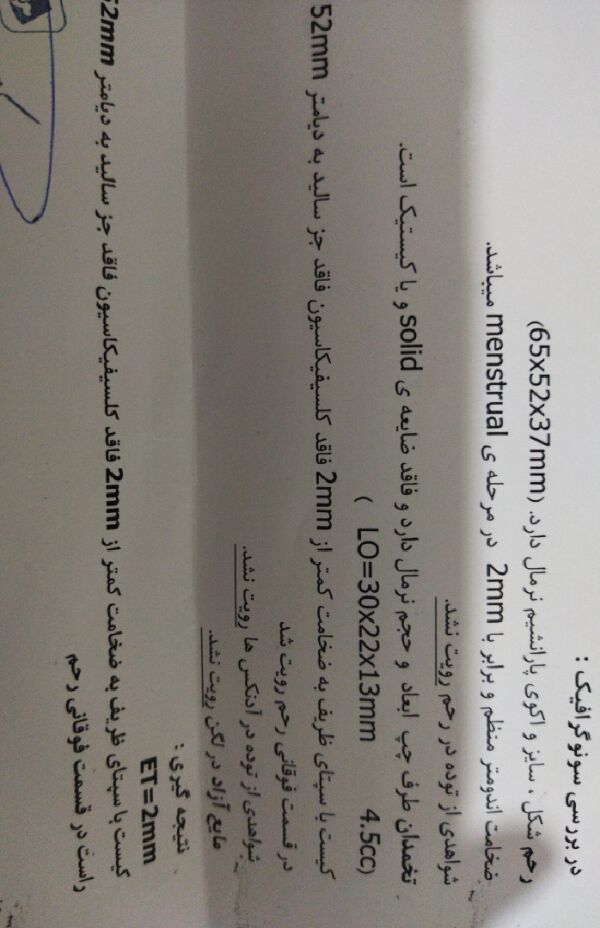 در بررسی سونوگرافیک :
رحم شکل ، سایز و اکوی پارانشیم نرمال دارد. (65x52x37mm)
ضخامت اندومتر منظم و برابر با 2mm در مرحله ی menstrual میباشد.
شواهدی از توده در رحم رویت نشد.
تخمدان طرف چپ ابعاد و حجم نرمال دارد و فاقد ضایعه ی solid و یا کیستیک است.
( LO=30x22x13mm 4.5cc)
کیست با سپتای ظریف به ضخامت کمتر از 2mm فاقد کلسیفیکاسیون فاقد جز سالید به دیامتر 52mm
در قسمت فوقانی رحم رویت شد
شواهدی از توده در آدنکس ها رویت نشد.
مایع آزاد در لگن رویت نشد.
نتیجه گیری :
ET=2mm
کیست با سپتای ظریف به ضخامت کمتر از 2mm فاقد کلسیفیکاسیون فاقد جز سالید به دیامتر 52mm
راست در قسمت فوقانی رحم